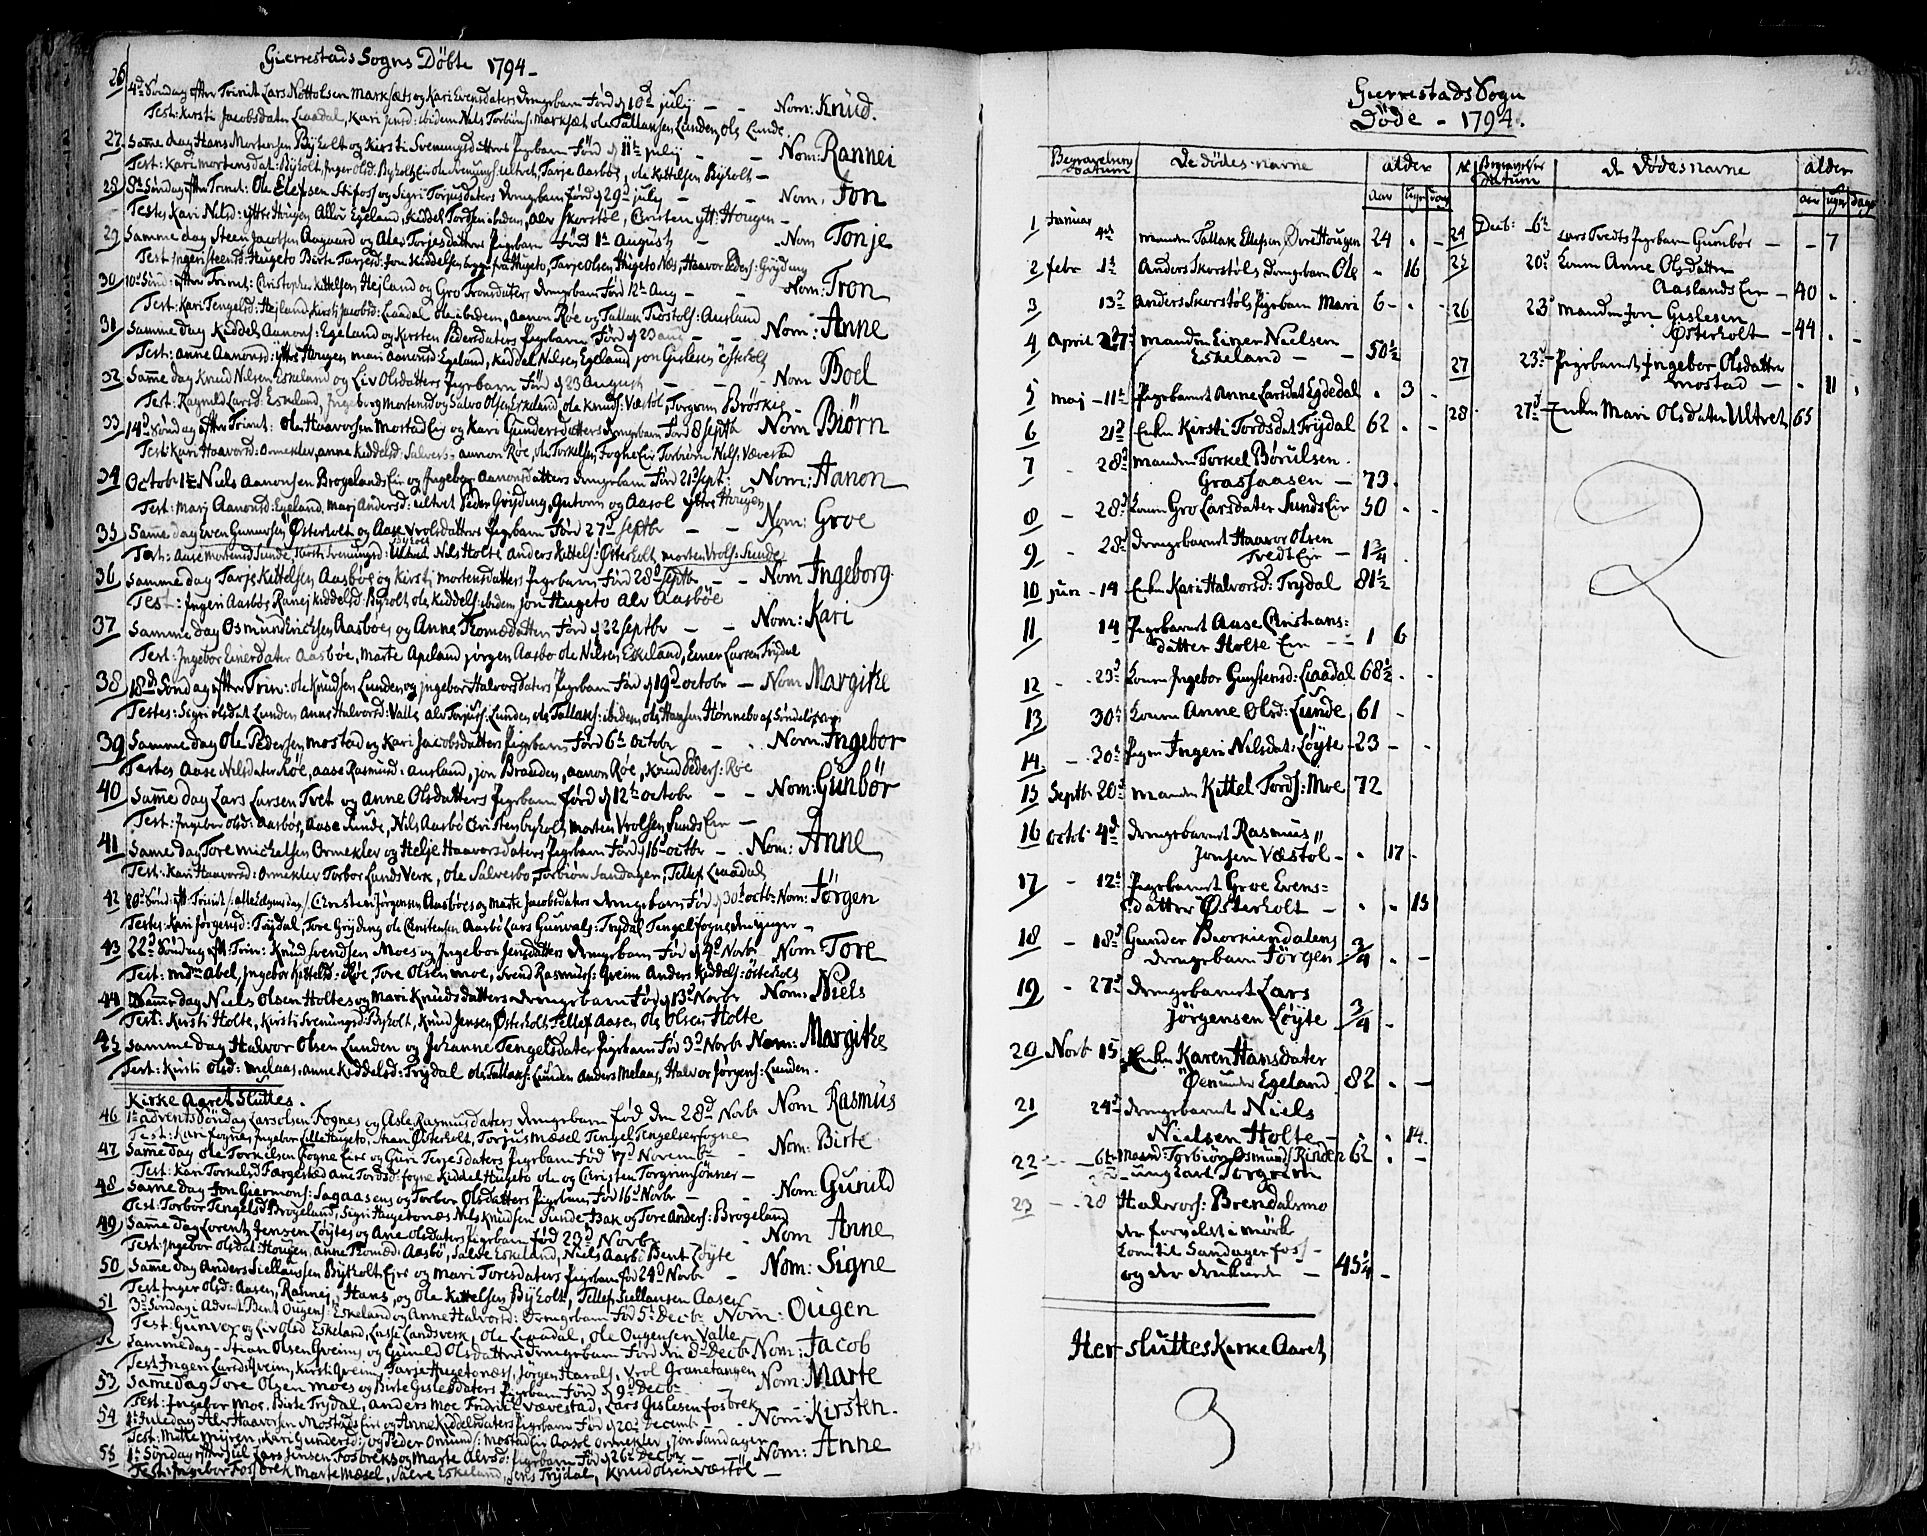 Gierrestads Sogns Döbte 1794-
26 4de Söndag efter Trinit Lars Nottolsen Marksæts og Kari Evensdaters drengebarn Förd 10d julij - - Nom: Knud.
Test: Kirsti Jacobsdater Laadal, Kari ibidem Nils Torbiörns: Marksæt ole Tallaksen Lunden, ole Lunde
27 Samme dag Hans Mortensen Byholt og Kirsti Sveningsdatters Pigebarn Född 11t julij - - Nom: Rannei
Test: Kari Mortensdat: Byholt, Inger olsd: Byholt Eie ole Svenings: ultvet, Tarje Aasböe, ole Kittelsen Byholt -
28 Söndag efter Trinit: Ole Elefsen Stifos og Sigri Torjusdaters drengebarn förd 29d july - - Nom: Jon
Testes Kari Nelsd: Yttre Hougen Allov Egeland, Kiddel Tordsen ibidem, alv Skorstöl, Christen ytt: Hougen -
29 Samme dag Steen Jacobsen Aagaard og Ales Torjesdatters Pigebarn född 1t Augusty - - Nom Tonje
Test Ingeri steensd: Hugeto Birte Tarjesd: Jon Kiddelsen bygge fra Hugeto, Tarje Olsen Hugeto Næs, Haavor Peders: Gryding
30 10de Sönd: efter Trinit: Christopher Kittelsen Hejland og Gro Tronsdaters drengebarn Född 12t Aug - - Nom: Tron
Test: Kari Tengelsd: Hejland, Kirsti Jacobsd: Laadal ole ibidem, Aanon Röe og Tallak Tiostols: Ausland
31 Samme dag Kiddel Aanons: Egeland og Kirsten Pedersdaters Pigebarn Född d 23 aug - - Nom: Anne
Test: Anne Aanonsd: Ytre Hougen Mari aanonsd: Egeland, Kiddel Nelsen Egeland jon Gislesen österholt
32 Samme dag Knud Nilsen Eskeland og Liv Olsdatters Pigebarn Född 23 August - - Nom Boel
Test: Ragnild Larsd: Eskeland, Ingeborg Mortensd og Salvo Olsen Eskeland, ole Knuds: Væstöl, Torgrim Bröskie -
33 14d Söndag efter Trinit: Ole Haavorsen Mostad Eie og Kari Gundersdatters drengebarn Förd 8 Septbr Nom Biörn
Test: Kari Haavorsd: Ormekler, anne Kiddelsd: Salvers, aanon Röe, ole Torkelsen, Fogne Eie Torbiörn Nils: Vævestad
34 Octob 1te Niels Aanonsen Brogelands Eie og Ingebor Aanonsdatters drengebarn Född 21d Sept: Nom: Aanon
Test: Marj Aanonsd: Egeland, Marj Andersd: ultvet Peder Gryding, Gutorm og Aasol Ytre Hougen
35 Samme dag Even Gunnersen Österholt og Aase Vrolsdatters Pigebarn född 27d Septbr - - Nom: Groe
Test: Aase Mortensd Sunde, Kirsti Sveningsd: Ultved Nils Holte Anders Kittels: Österholt Morten Vrols: Sunde
36 Samme dag Tarje Kittelsen Aasböe og Kirsti Mortensdatters Pigebarn Född 28d Septbr - - Nom Ingeborg.
Test: Ingeri Aasböe Ranej Kiddelsd: Byholt ole Kiddels: ibidem jon Hugeto Alv Aasböe
37 Samme dag Osmund Erichsen Aasböes og Anne Thomædatters Född 22 Septbr - - Nom: Kari
Test: Ingebor Einersdater Aasböe, Marte Apeland jörgen Aasbo ole Nilsen, Eskeland, Einer Larsen Trydal
38 18d Söndag efter Trin: ole Knudsen Lunden og Ingebor Halvorsdaters Pigebarn Född 19d octobr - Nom Margithe
Testes: Sigri olsdat Lunden Anne Halvorsd: Valle Alv Torjus: Lunden ole Tallaks: ibidem ole Hansen Hönnebo af Söndeløv
39 Samme dag Ole Pedersen Mostad og Kari Jacobsdatters Pigebarn Född 6t octobr - . Nom: Ingebor
Testes Aase Nelsdater Röe, aase Rasmusd: Ausland, jon Branden, aanon Röe, Knud Peders: Röe
40 Samme dag Lars Larsen Tvet og Anne Olsdatters Pigebarn Född d 12t octobr - - Nom: Gunbör
Test: Ingebor olsd: Aasböe, Aase Sunde, Nils Aasböe Christen byholt, Morten Vrolsen Sunds Eie -
41 Samme dag Tore Michelsen Ormekler og Helje Haavorsdaters Pigebarn Född 16 octbr - . Nom: Anne
Test: Kari Haavorsd: Ormekler Torbor Landsverk, Ole Salversbo, Torbiörn Sandagen, Tellef Laadal
42 20d Sönd: eft: Trinit: /: allehelgensdag /: Christen Jörgensen Aasböes og Marte Jacobsdaters drengebarn Född d 30t octbr Nom: Jörgen
Testes: Kari Jörgensd: Trydal, Tore Gryding ole Christensen Aasbö Lars Gunvals: Trydal Tengel Fogne -
43 22d Söndag eft: Trin: Knud Svendsen Moes og Ingebor Jensdatters drengebarn Född d 9d Norbr Nom Tore
Test: Mdm Abel, Ingebor Kittelsd: Röe, Tore Olsen Moe, Svend Rasmus: Greim Anders Kiddels: österholt
44 Samme dag Niels Olsen Holtes og Mari Knudsdatters drengebarn Född 13d Norbr Nom: Niels
Test: Kirsti Holte, Kirsti Sveningsd: Byholt, Knud Jensen Österholt Tellef Aasen Ole Olsen Holte
45 Samme dag Halvor Olsen Lunden og Johanne Tengelsdater Pigebarn Född 3d Norbr Nom: Margithe
Test: Kirsti Olsd: Melaas, Anne Kiddelsd: Trydal ole Tallaks: Lunden Anders Melaas, Halvor Jörgens: Lunden.
Kirke Aaret Sluttes.
46 1te advents Söndag Lars olsen Fognes og Asle Rasmusdaters drengebarn föd den 28d Norbr Nom Rasmus
Test: Kari fogne, Ingebor Lille Hugeto, Stian Österholt, Torjus Mæsel Tengel Tengelsen fogne
47 Samme dag ole Torkilsen Fogne Eie og Guri Terjesdaters Pigebarn Föd 17d Novembr - Nom: Birte
Test: Kari Torkelsd Færgestad Ane Tordsd: fogne Kiddel Hugeto ole og Christen Torgrimsönner -
48 Samme dag Jon Giermons: Sagaasens og Torbor Olsdatters Pigebarn Född 16d Norbr - - Nom: Gunild
Test: Torbor Tengelsd Brogeland, Sigri Hugetonæs Nils Knudsen Sunde, Bak og Tore Anders: Brogeland
49 Samme dag Lorentz Jensen Löytes og Ane Olsdaters Pigebarn föd 23d Norbr Nom Anne
Test: Ingebor olsdat: Hougen, Anne Thomæd: Aasbö, Salve Eskeland, Niels Aasbö Bent Löyte
50 Samme dag Anders Siellaugsen Byholt Eie og Mari Toresdaters Pigebarn föd 24d Norbr - Nom: Signe
Test Inger Olsd: Aasen, Rannej, Hans, og Ole Kittelsen Byholt, Tellef Siellausen Aasen
51 3d Söndag i Advent Bent Ougens: Eskeland og Anne Halvorsd: drengebarn Föd 5t Decbr Nom: Ougen
Test: Gunvor og Liv olsd Eskeland, Lasse Landsverk, Ole Laadal, Ole Ougensen Valle
52 Samme dag - Stian Olsen Greims og Gunild Olsdatters drengebarn Föd den 8d Decbr Nom: Jacob
Test Ingeri Larsd: Greim, Kirsti Greim, Tarje Hugetonæs, Jörgen Harals, Vrol Granetangen
53 Samme dag Tore Olsen Moes og Birte Gislesdaters Pigebarn Föd d 9d Decbr - Nom: Marte
Test: Ingebor Moe. Birte Trydal, Anders Moe Fridrik Vævestad, Lars Gislesen fosbrek
54 1te Juledag Alv Haavorsen Mostads Eie og Anne Kiddelsdaters Pigebarn Föd d 20d Decemb - - Nom: Kirsten.
Test: Mitte Myren, Kari Gundersd: og Peder Omunds: Mostad Eie Aasol Ormekler, Jon Sandager
55 1te Söndag efter Jul Lars Jensen Fosbreks og Marte Alvsd: Pigebarn Föd d 26t Decbr - Nom: Anne
Test: Ingebor Fosbrek Marte Mæsel, Salve Eskeland, Jens Trydal, Knud olsen Væstöl -
Gierrestads Sogn
Döde - 1794.
Begravelsens datum De dödes navne alder Nr Begravelses datum De Dödes navne alder
aar ugr dag aar ugr dage
1 Januar 4de Manden Tallak Ellefsen Övre Hougen 24 . -
2 febr 1te Anders Skorstöls drengebarn Ole - 16 -
3 13d Anders Skorstöls Pigebarn Mari 6 - . -
4 April 27d Manden Einer Nielsen
Eskeland - - 50½
5 Maj - 11t Pigebarnet Anne Larsdat Egdedal . 3 . -
6 21d Enken Kirsti Tordsdat Trydal 62 . -
7 - 28d Manden Torkel Börulsen
Grassaasen - 73.
8 - 28d Konen Gro Larsdater Sunds Eie 50 . -
9 - 28d drengebarnet Haavor Olsen
Tvedt Eie - 1¾ .
10 juni - 14 Enken Kari Halvorsd: Trydal 81½
11 14 Pigebarnet Aase Christians=
datter Holte Eie - - 1 6
12 - . 23d Konen Ingebor Gunstensd: Laadal 68½ - .
13 30t Konen Anne Olsd: Lunde 61 -
14 - 30t Pigen Ingeri Nilsdat: Löyte - 23 - -
15 Septbr 20d Manden Kittel Tords: Moe 72
16 Octob: 4d drengebarnet Rasmus
Jonsen Væstöl - . 17 -
17 - 12t Pigebarnet Groe Evens=
datter Österholt - . . 15
18 - 18d Gunder Biorkiendalens
drengebarn Jörgen ¾ . -
19 - 27d drengebarnet Lars
Jörgensen Löyte ¾ .
20 Norb 15 Enken Karen Hansdater
Öen under Egeland 82 . -
21 24d drengebarnet Niels
Nielsen Holte - . . 14.
22 - 6t Mand: Torbiörn Osmunds: Rinden 62 . -
ungkarl Torgrim
23 - . 28 Halvors: Brendalsmo
der forvildet i mörke
kom til Sandager fos -
og der druknede - 45¼ -
Her sluttes Kirke Aaret
3
24 Decb: 6t Lars Tvedts Pigebarn Gunbör - - 7
25 20d Konen Anne Olsdatter
Aaslands Eie - 40 .
26 23d Manden Jon Gislesen
Österholt - 44 . -
27 23d Pigebarnet Ingebor Olsdatter
Mostad - . 11 .
28 27d Enken Mari Olsdater Ultvet 65
2